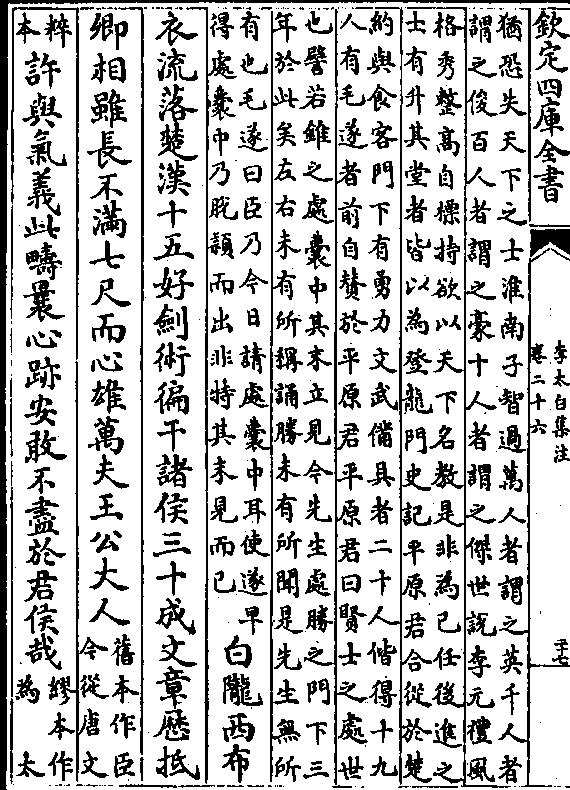 欽定四庫全書
李太白集注
卷二十六
二十七
猶恐失天下之士淮南子智過萬人者謂之英千人者
謂之俊百人者謂之豪十人者謂之傑世說李元禮風
格秀整高自標持欲以天下名教是非為己任後進之
士有升其堂者皆以為登龍門史記平原君合從於楚
約與食客門下有勇力文武備具者二十人偕得十九
人有毛遂者前自贊於平原君平原君曰賢士之處世
也譬若錐之處囊中其末立見今先生處勝之門下三
年於此矣左右未有所稱誦勝未有所聞是先生無所
有也毛遂曰臣乃今日請處囊中耳使遂早
得處囊中乃脫穎而出非特其末見而已
白隴西布
衣流落楚漢十五好劍術徧干諸侯三十成文章歷抵
卿相雖長不滿七尺而心雄萬夫王公大人
舊本作臣
今從唐文
粹
本
許與氣義此疇曩心跡安敢不盡於君侯哉
繆本作
為太